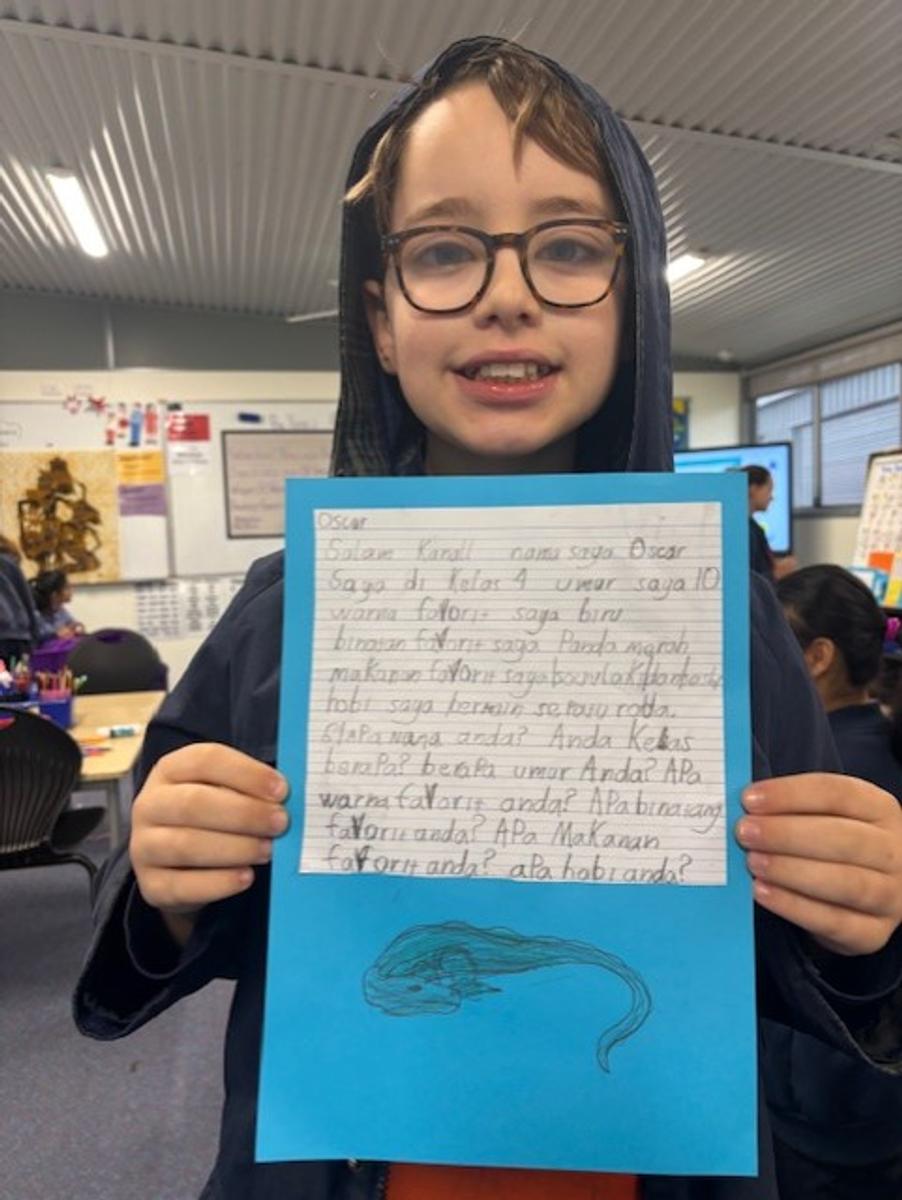 Oscar
Salam Kanall nama saya Oscar
Saya di Kelas 4 umur saya 10
warna favorit saya biru
binatan favorit saya Panda marah
makanan favorit saya
hobi saya bermain sepatu roda.
SiaPa nama anda? Anda Kelas
beraPa? beraPa umur Anda? APa
warna favorit anda? APa binatang
favorit anda? APa MaKanan
favorit anda? aPa hobi anda?